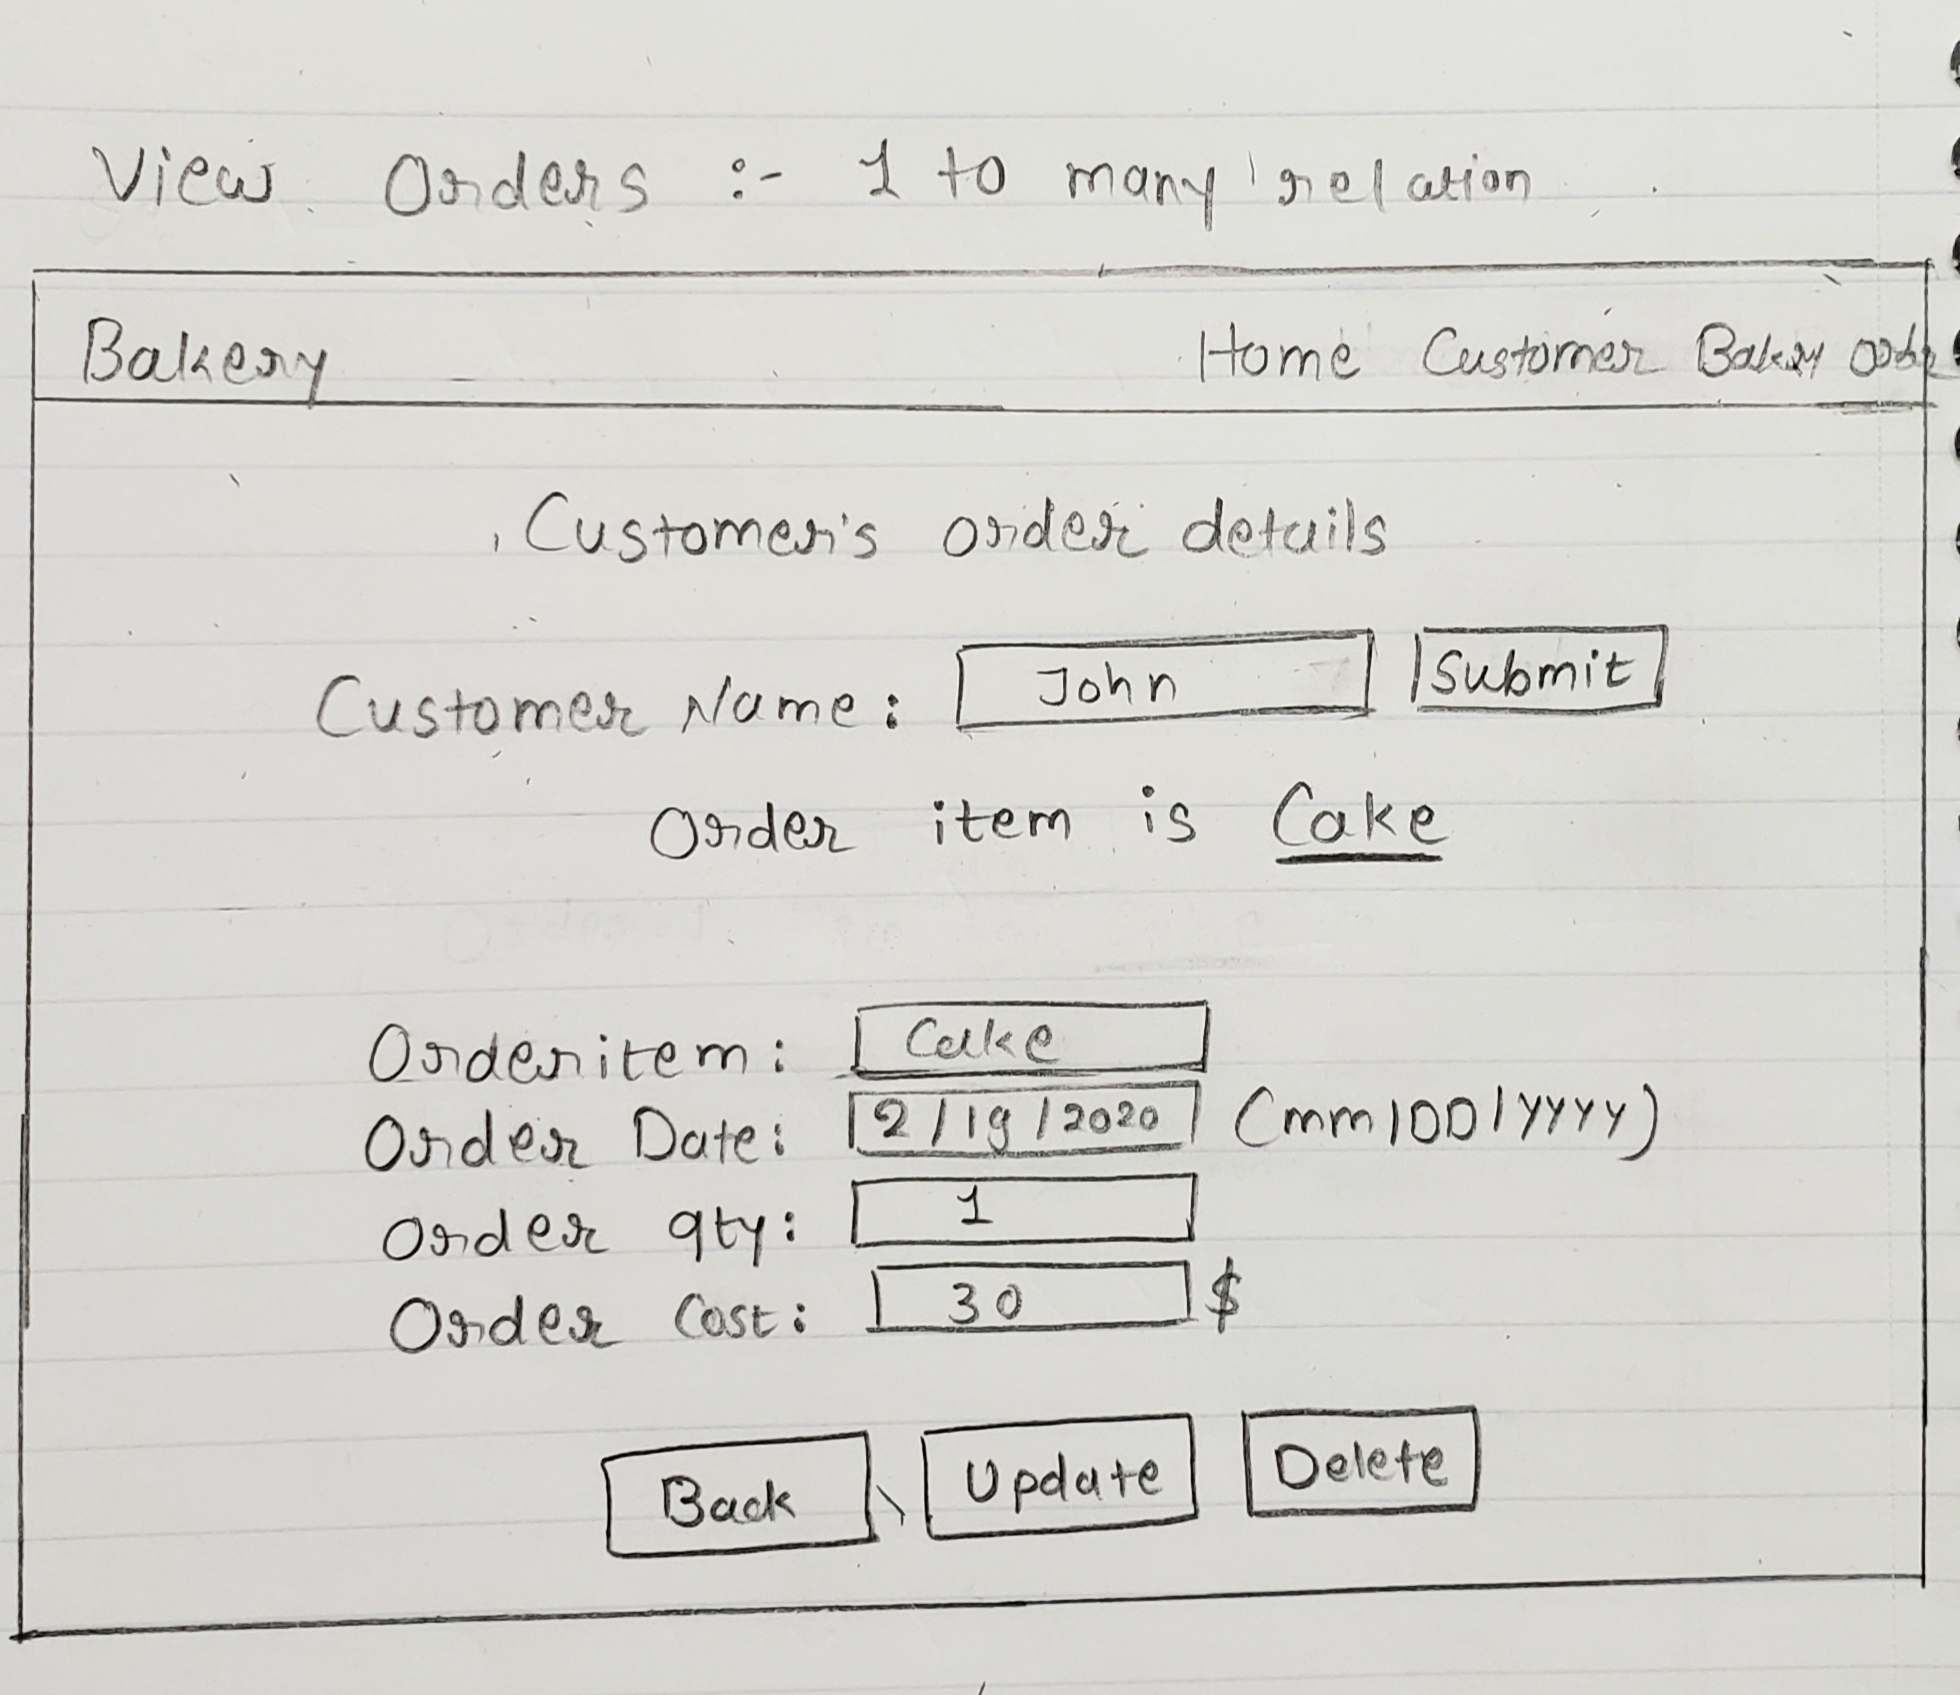 View Orders :- 1 to many relation
Bakery Home Customer Bakery Order
Customer's order details
Customer Name: John Submit
Order item is Cake
Orderitem: Cake
Order Date: 2/19/2020 (mm/DD/yyyy)
Order qty: 1
Order Cost: 30 $
Back Update Delete